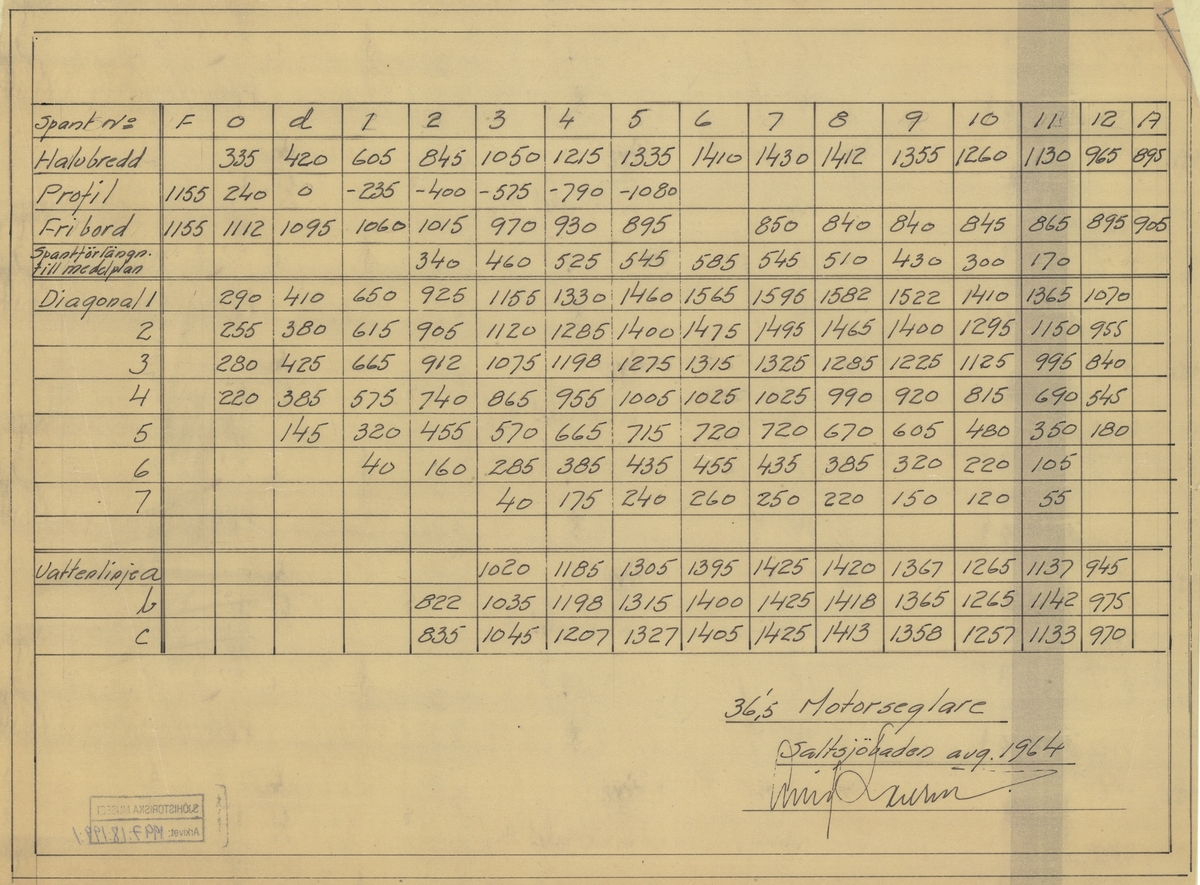 Spant No F 0 d 1 2 3 4 5 6 7 8 9 10 11 12 A
Halvbredd 335 420 605 845 1050 1215 1335 1410 1430 1412 1355 1260 1130 965 895
Profil 1155 240 0 -235 -400 -575 -790 -1080
Fribord 1155 1112 1095 1060 1015 970 930 895 850 840 840 845 865 895 905
Spantförlängn.
till medelplan 340 460 525 545 585 545 510 430 300 170
Diagonal 1 290 410 650 925 1155 1330 1460 1565 1595 1582 1522 1410 1365 1070
2 255 380 615 905 1120 1285 1400 1475 1495 1465 1400 1295 1150 955
3 280 425 665 912 1075 1198 1275 1315 1325 1285 1225 1125 995 840
4 220 385 575 740 865 955 1005 1025 1025 990 920 815 690 545
5 145 320 455 570 665 715 720 720 670 605 480 350 180
6 40 160 285 385 435 455 435 385 320 220 105
7 40 175 240 260 250 220 150 120 55
Vattenlinje a 1020 1185 1305 1395 1425 1420 1367 1265 1137 945
b 822 1035 1198 1315 1400 1425 1418 1365 1265 1142 975
c 835 1045 1207 1327 1405 1425 1413 1358 1257 1133 970
36,5 Motorseglare
Saltsjöbaden aug. 1964
SJÖHISTORISKA MUSEET
Arkivet: